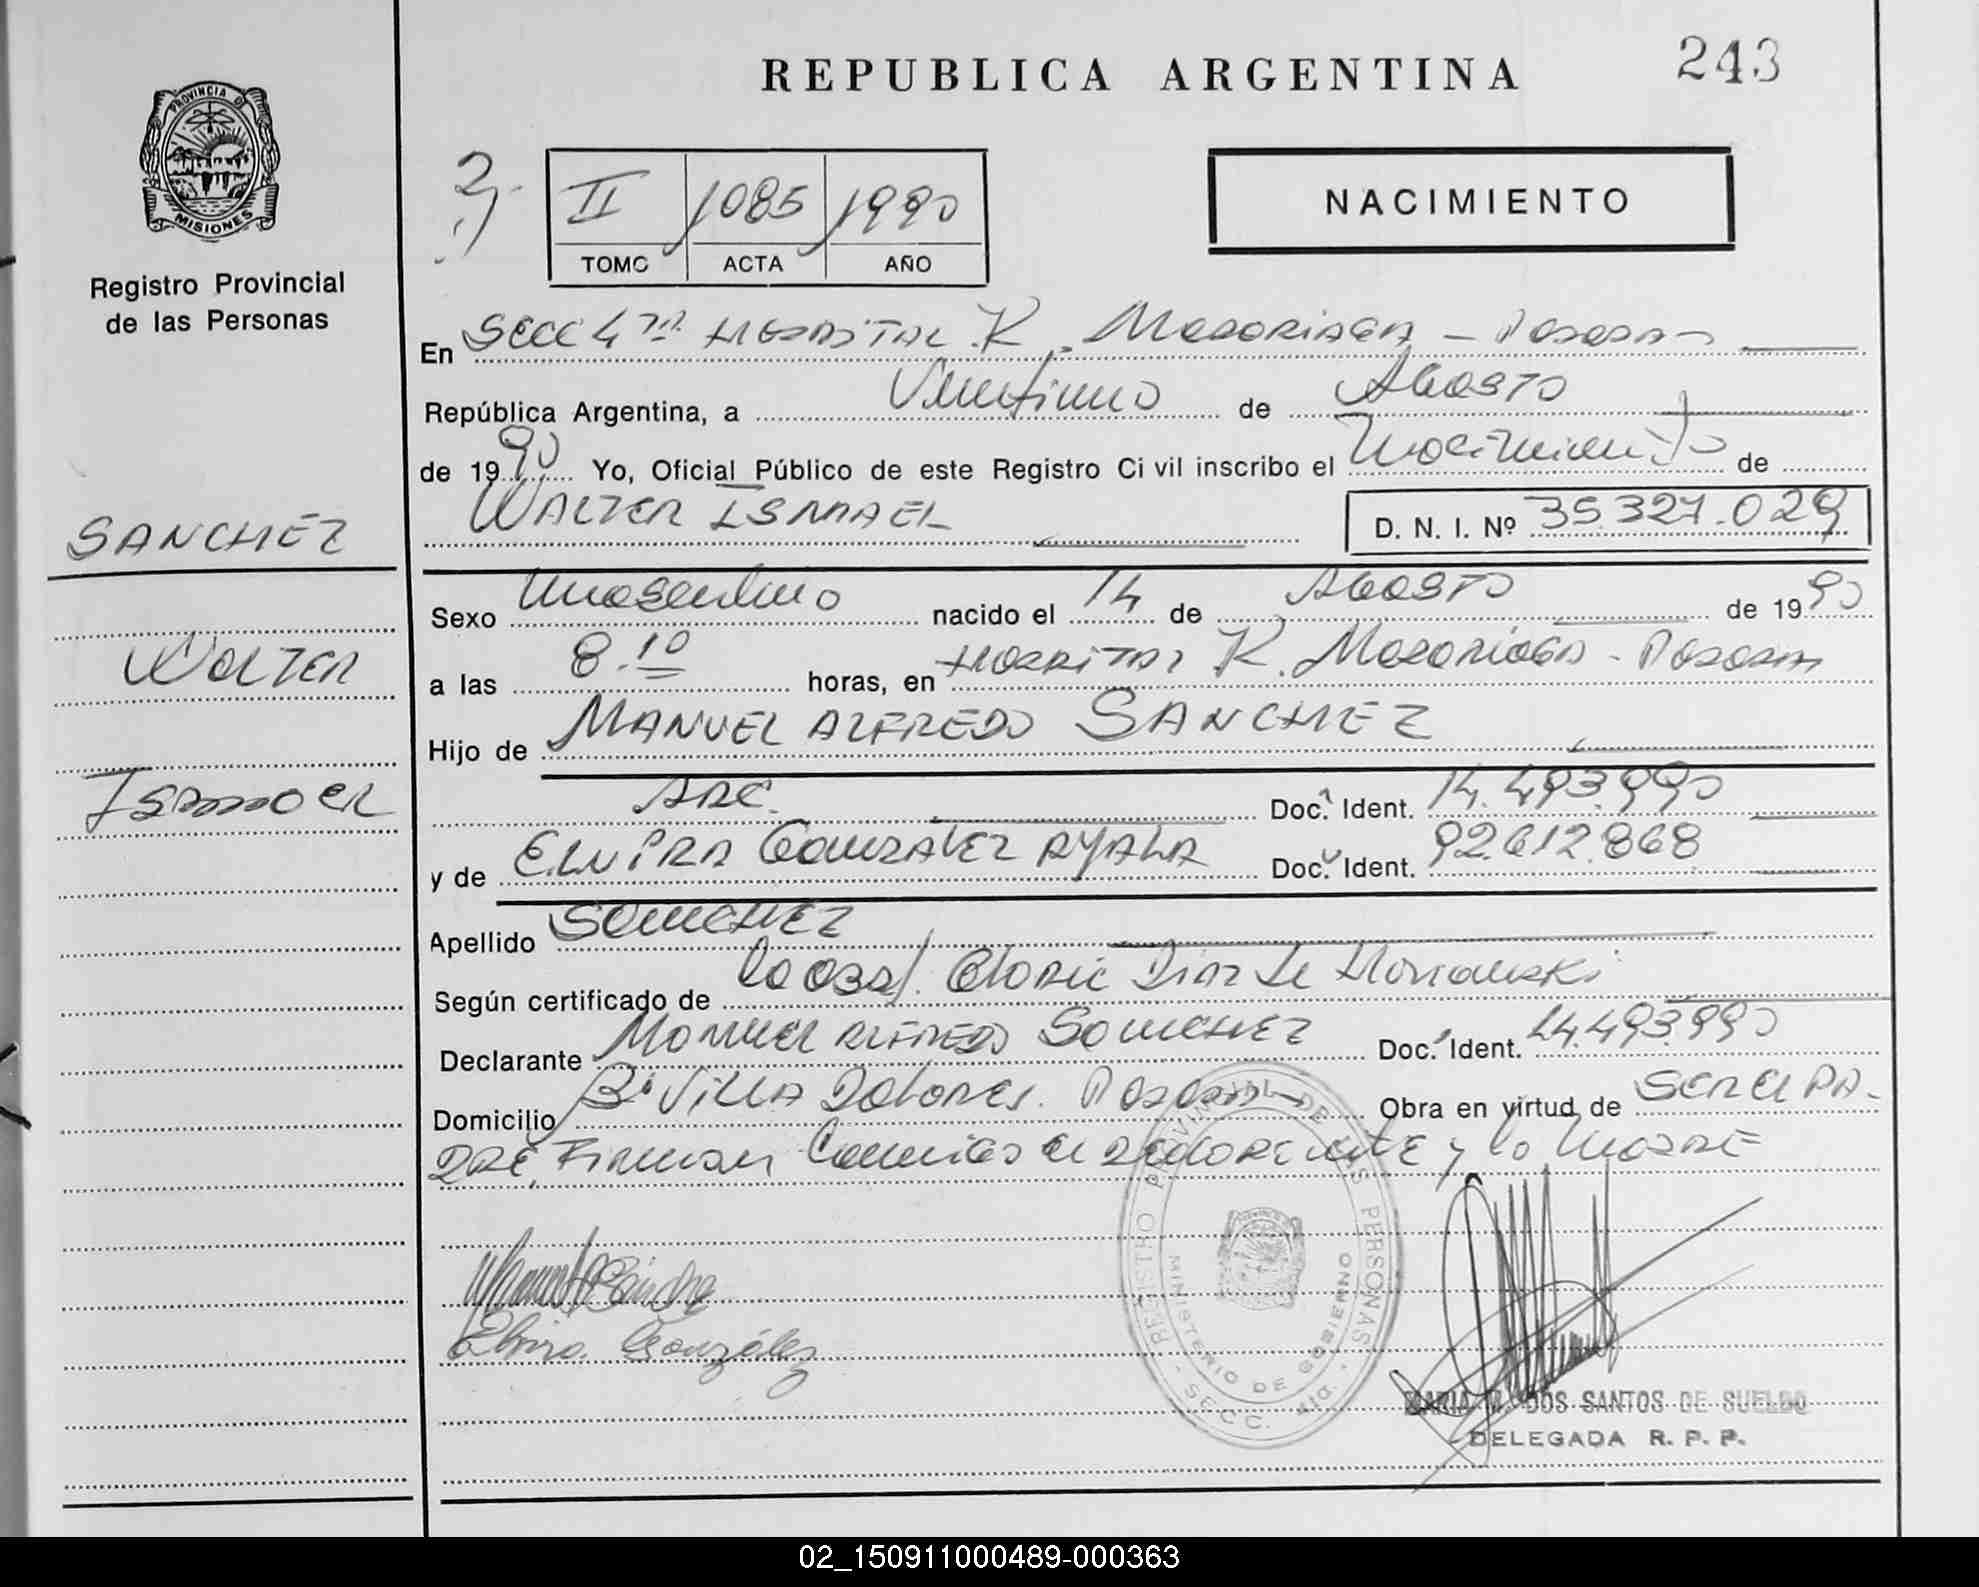 REPUBLICA ARGENTINA
243
PROVINCIA DE
MISIONES
Registro Provincial
de las Personas
II 1085 1990
TOMO ACTA AÑO
NACIMIENTO
En SECC 4ta HOSPITAL R. MADARIAGA - POSADAS
República Argentina, a Veintiuno de AGOSTO
de 1990 Yo, Oficial Público de este Registro Civil inscribo el Nacimiento de
WALTER ISMAEL D. N. I. Nº 35.327.029
SANCHEZ
WALTER
ISMAEL
Sexo Masculino nacido el 14 de AGOSTO de 1990
a las 8.10 horas, en HOSPITAL R. MADARIAGA - POSADAS
Hijo de MANUEL ALFREDO SANCHEZ
ARG. Doc. Ident. 14.493.990
y de ELVIRA GONZALEZ AYALA Doc. Ident. 92.612.868
Apellido SANCHEZ
Según certificado de la Obst. DIAZ de
Declarante MANUEL ALFREDO SANCHEZ Doc. Ident. 14.493.990
Domicilio Bº VILLA DOLORES. POSADAS Obra en virtud de SER EL PA-
DRE, FIRMAN CONMIGO EL DECLARANTE y la MADRE
Elvira González
REGISTRO PROVINCIAL DE LAS PERSONAS
MINISTERIO DE GOBIERNO
SECC. 4ta.
MARIA DOS SANTOS DE SUELDO
DELEGADA R. P. P.
02_150911000489-000363